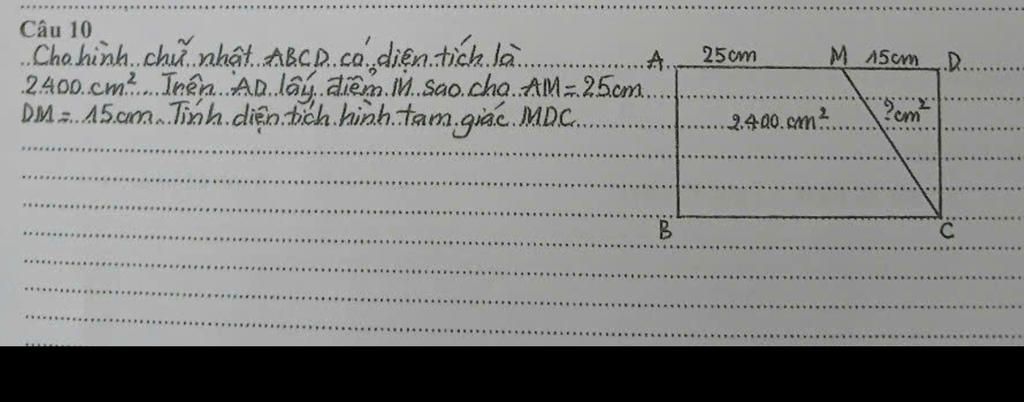 Câu 10
Cho hình chữ nhật ABCD có diện tích là
2400 cm². Trên AD lấy điểm M sao cho AM = 25cm
DM = 15cm. Tính diện tích hình tam giác MDC
A 25cm M 15cm D
2400 cm² ? cm²
B C